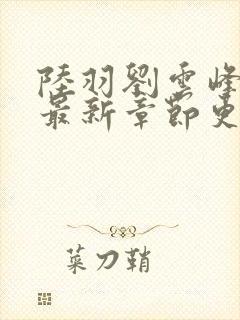 陸羽劉雲峰
最新章節更
菜刀鞘